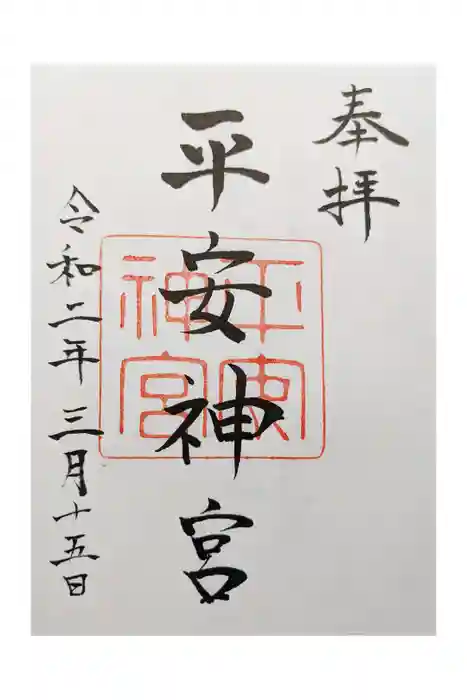 奉拝
平安神宮
平安神宮
令和二年三月十五日